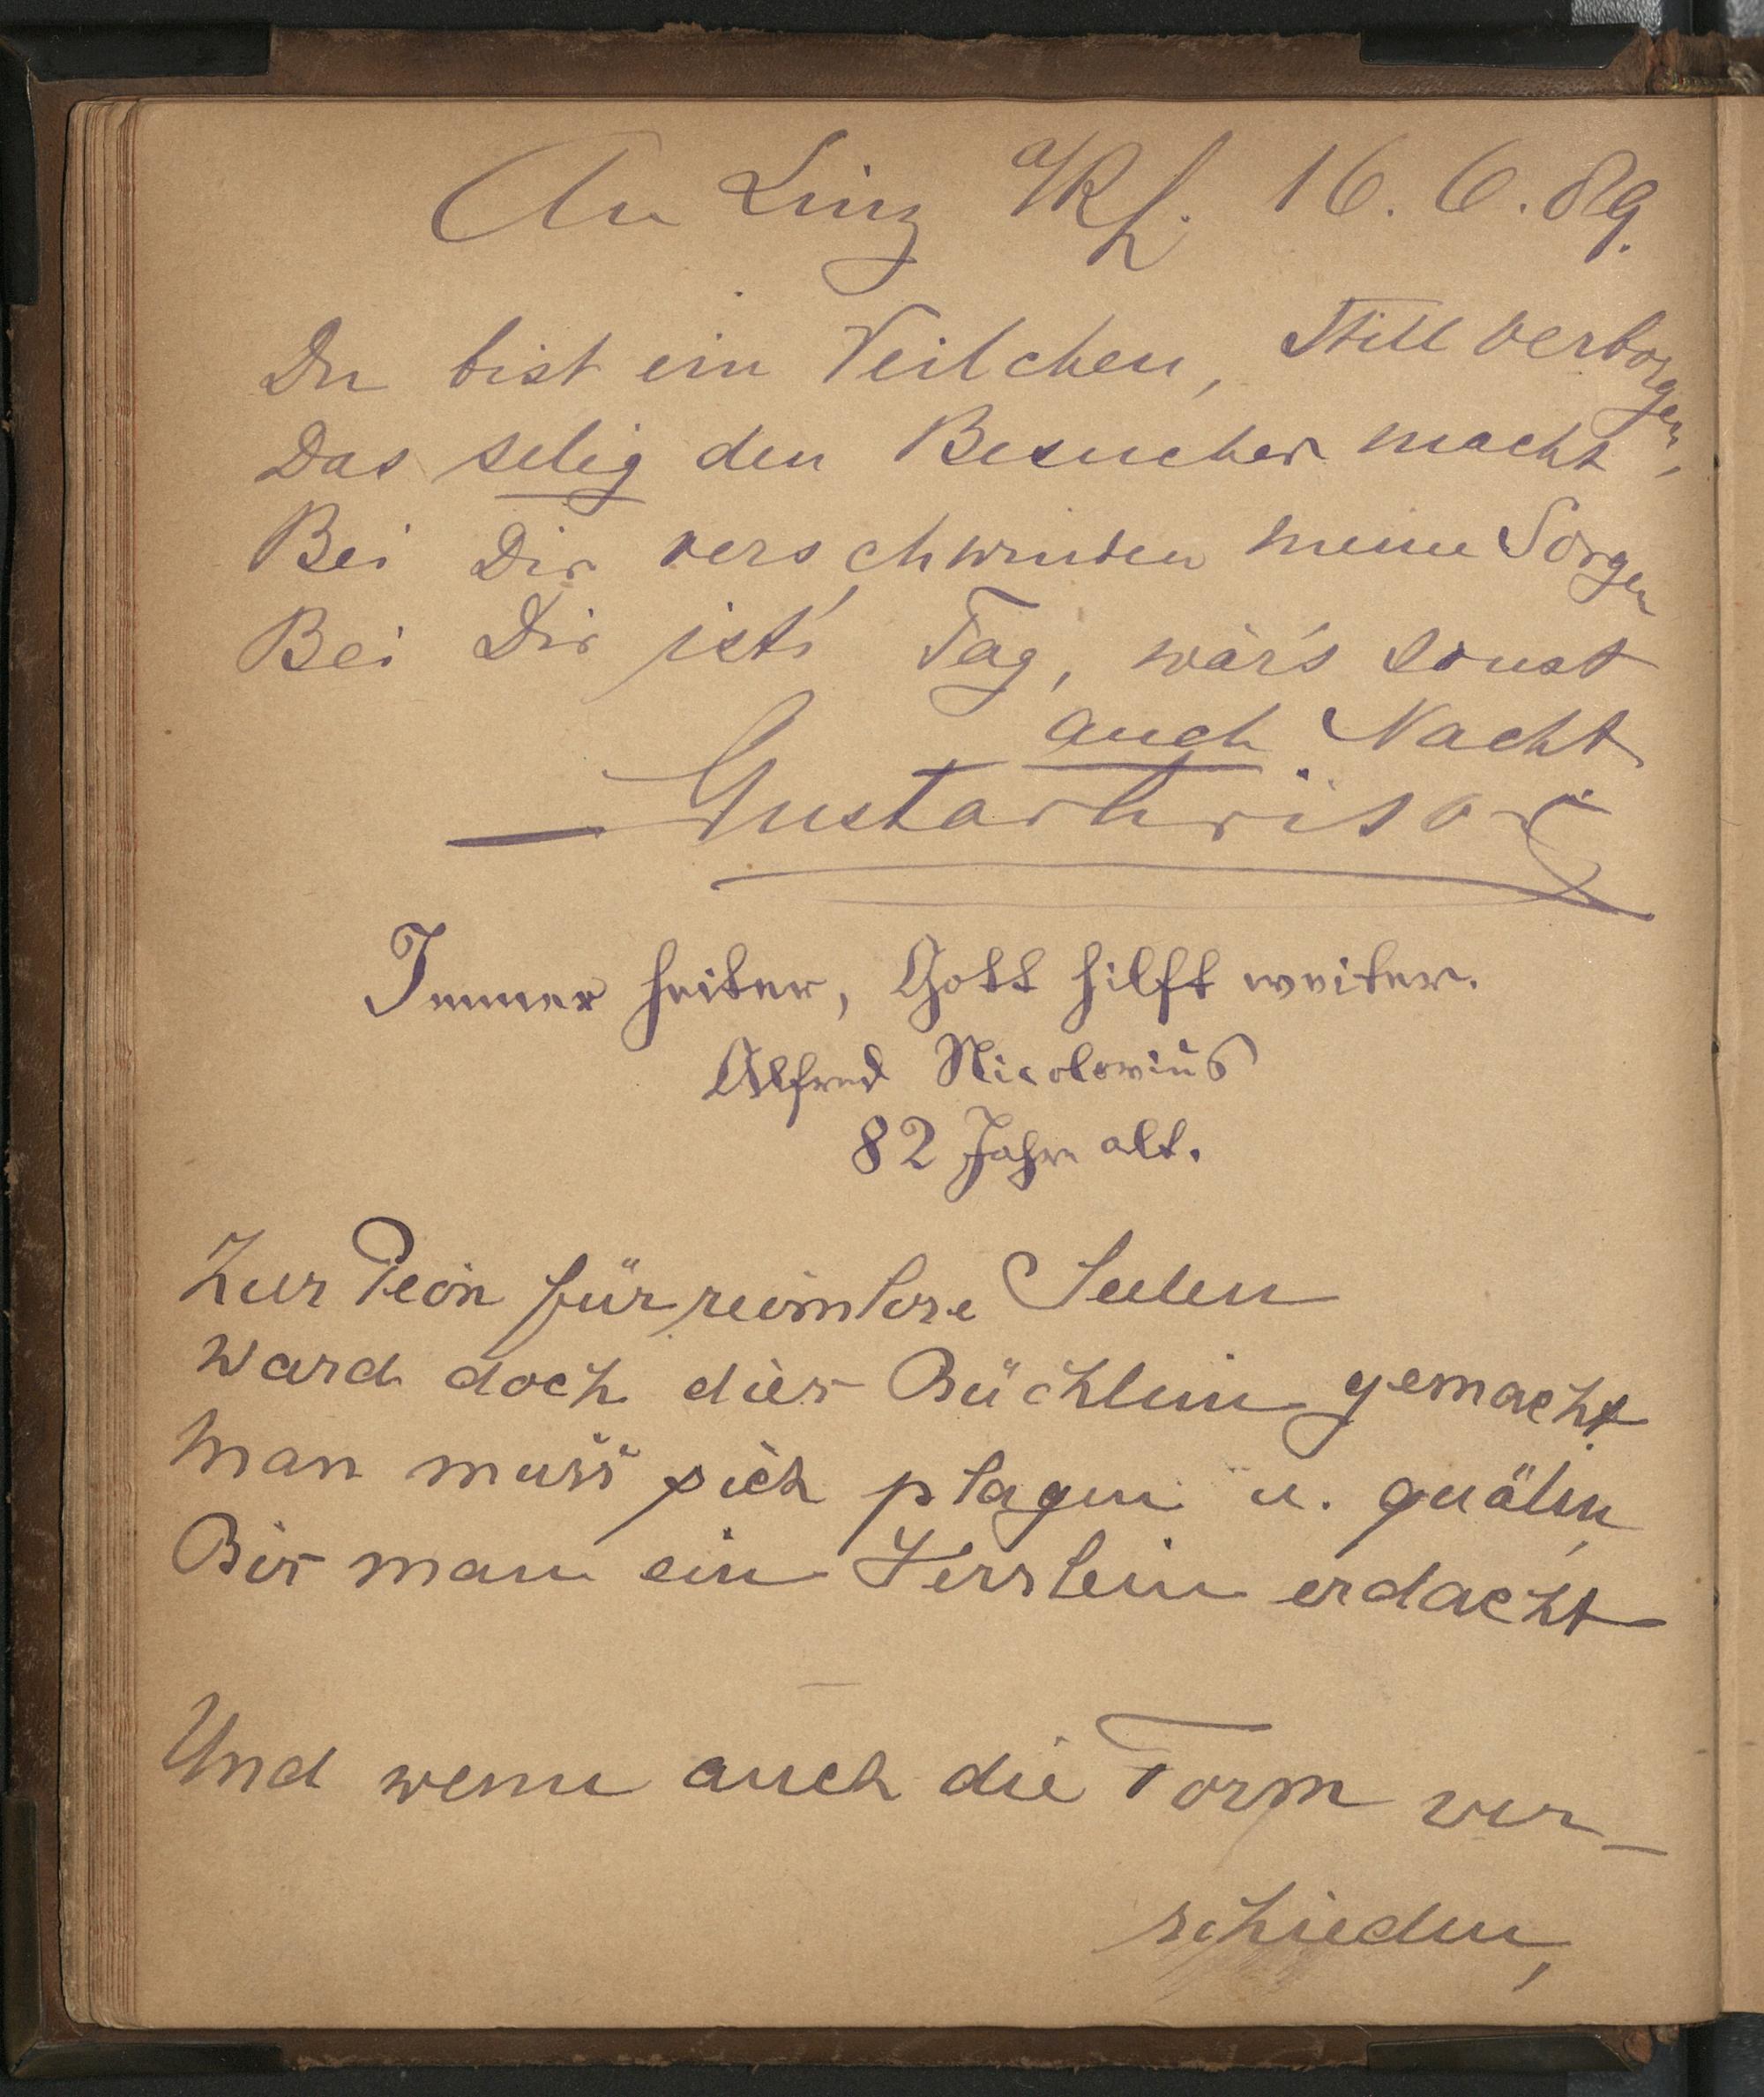 An Linz a/Rh. 16.6.89.
Du bist ein Veilchen, still verborgen,
Das selig den Besucher macht
Bei Dir verschwinden meine Sorgen
Bei Dir ist's Tag, wär's sonst
auch Nacht
Immer heiter, Gott hilft weiter.
Alfred Nicolovius
82 Jahre alt.
Zur Pein für reimlose Seelen
Ward doch dies Büchlein gemacht
Man muss sich plagen u. quälen,
Bis man ein Verslein erdacht
Und wenn auch die Form ver-
schieden,